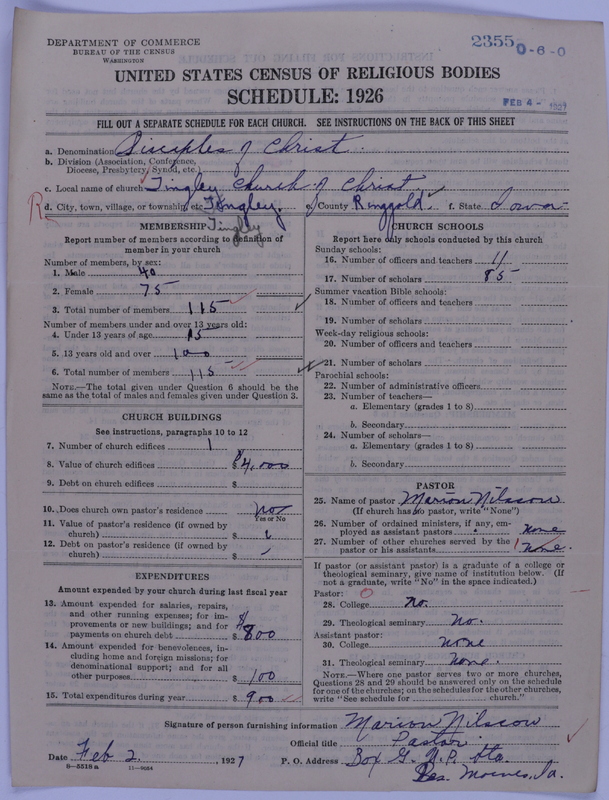 DEPARTMENT OF COMMERCE
BUREAU OF THE CENSUS
WASHINGTON
2355 0-6-0
UNITED STATES CENSUS OF RELIGIOUS BODIES
SCHEDULE: 1926
FEB 4 - 1927
FILL OUT A SEPARATE SCHEDULE FOR EACH CHURCH. SEE INSTRUCTIONS ON THE BACK OF THIS SHEET
a. Denomination Disciples of Christ
b. Division (Association, Conference,
Diocese, Presbytery, Synod, etc.)
c. Local name of church Tingley Church of Christ
R d. City, town, village, or township, etc. Tingley. e. County Ringgold f. State Iowa
Tingley
MEMBERSHIP
Report number of members according to definition of
member in your church
Number of members, by sex:
1. Male 40
2. Female 75
3. Total number of members 115
Number of members under and over 13 years old:
4. Under 13 years of age 15
5. 13 years old and over 100
6. Total number of members 115
NOTE.—The total given under Question 6 should be the
same as the total of males and females given under Question 3.
CHURCH BUILDINGS
See instructions, paragraphs 10 to 12
7. Number of church edifices 1
8. Value of church edifices $ 4,000
9. Debt on church edifices $
10. Does church own pastor's residence no
Yes or No
11. Value of pastor's residence (if owned by
church) $
12. Debt on pastor's residence (if owned by
church) $ -
EXPENDITURES
Amount expended by church during last fiscal year
13. Amount expended for salaries, repairs,
and other running expenses; for im-
provements or new buildings; and for
payments on church debt $ 800
14. Amount expended for benevolences, in-
cluding home and foreign missions; for
denominational support; and for all
other purposes 100
15. Total expenditures during year $ 900
CHURCH SCHOOLS
Report here only schools conducted by this church
Sunday schools:
16. Number of officers and teachers 11
17. Number of scholars 85
Summer vacation Bible schools:
18. Number of officers and teachers
19. Number of scholars
Week-day religious schools:
20. Number of officers and teachers
21. Number of scholars
Parochial schools:
22. Number of administrative officers
23. Number of teachers—
a. Elementary (grades 1 to 8)
b. Secondary
24. Number of scholars—
a. Elementary (grades 1 to 8)
b. Secondary
PASTOR
25. Name of pastor Marion Nilscow
(If church has no pastor, write "None")
26. Number of ordained ministers, if any, em-
ployed as assistant pastors none
27. Number of other churches served by the
pastor or his assistants none.
If pastor (or assistant pastor) is a graduate of a college or
theological seminary, give name of institution below. (If
not a graduate, write "No" in the space indicated.)
Pastor: O
28. College no.
29. Theological seminary no.
Assistant pastor:
30. College none
31. Theological seminary none.
NOTE.—Where one pastor serves two or more churches,
Questions 28 and 29 should be answered only on the schedule
for one of the churches; on the schedules for the other churches,
write "See schedule for church."
Signature of person furnishing information Marion Nilscow
Official title Pastor
Date Feb 2 1927 P. O. Address Box G. U.P. Sta.
8-5518a 11-9084 Des Moines, Ia.